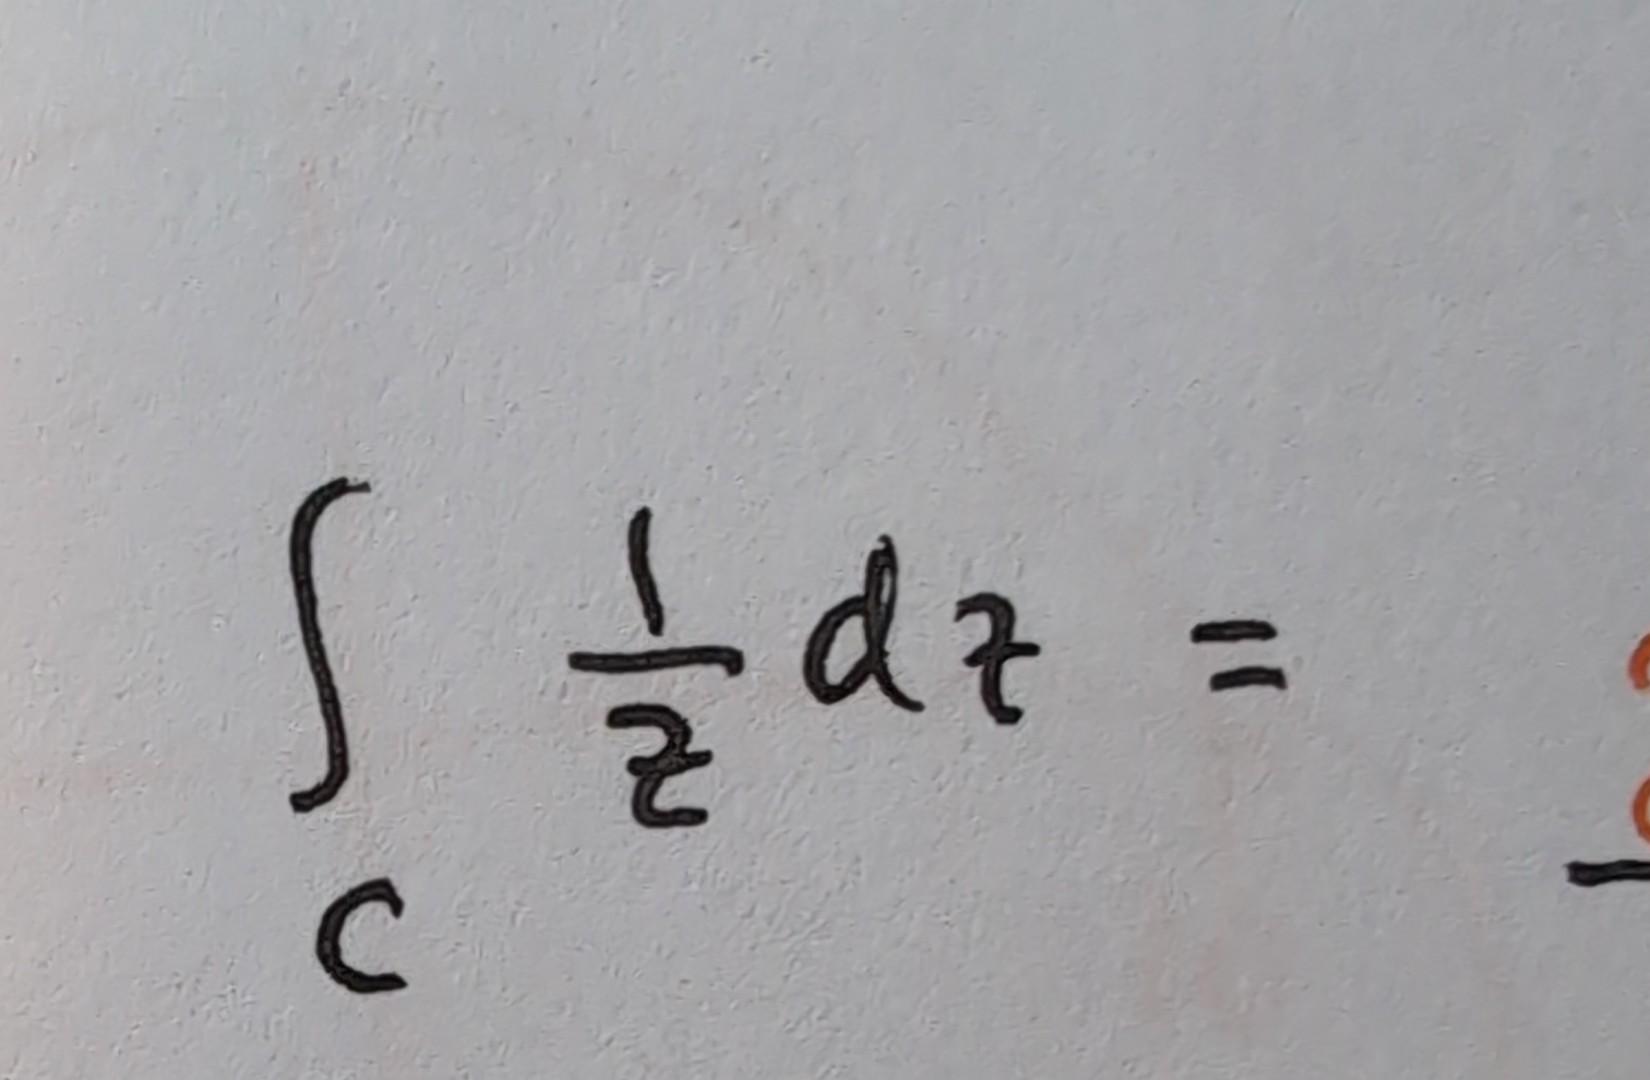 ∫_C 1/z dz =